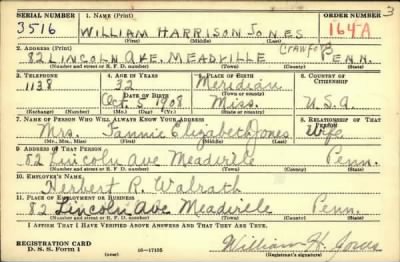 SERIAL NUMBER 1. NAME (Print) ORDER NUMBER 3
3516 WILLIAM HARRISON JONES 164-A
(First) (Middle) (Last)
2. ADDRESS (Print) CRAWFORD
82 LINCOLN AVE. MEADVILLE PENN.
(Number and street or R. F. D. number) (Town) (County) (State)
3. TELEPHONE 4. AGE IN YEARS 5. PLACE OF BIRTH 6. COUNTRY OF CITIZENSHIP
1138 32 Meridian
DATE OF BIRTH (Town or county)
Oct. 5, 1908 Miss. U.S.A.
(Exchange) (Number) (Mo.) (Day) (Yr.) (State or country)
7. NAME OF PERSON WHO WILL ALWAYS KNOW YOUR ADDRESS 8. RELATIONSHIP OF THAT PERSON
Mrs. Fannie Elizabeth Jones Wife
(Mr., Mrs., Miss) (First) (Middle) (Last)
9. ADDRESS OF THAT PERSON
82 Lincoln Ave Meadville Penn.
(Number and street or R. F. D. number) (Town) (County) (State)
10. EMPLOYER'S NAME
Herbert R. Walrath
11. PLACE OF EMPLOYMENT OR BUSINESS
82 Lincoln Ave Meadville Penn.
(Number and street or R. F. D. number) (Town) (County) (State)
I AFFIRM THAT I HAVE VERIFIED ABOVE ANSWERS AND THAT THEY ARE TRUE.
REGISTRATION CARD
D. S. S. Form 1 16-17105 William H. Jones
(over) (Registrant's signature)